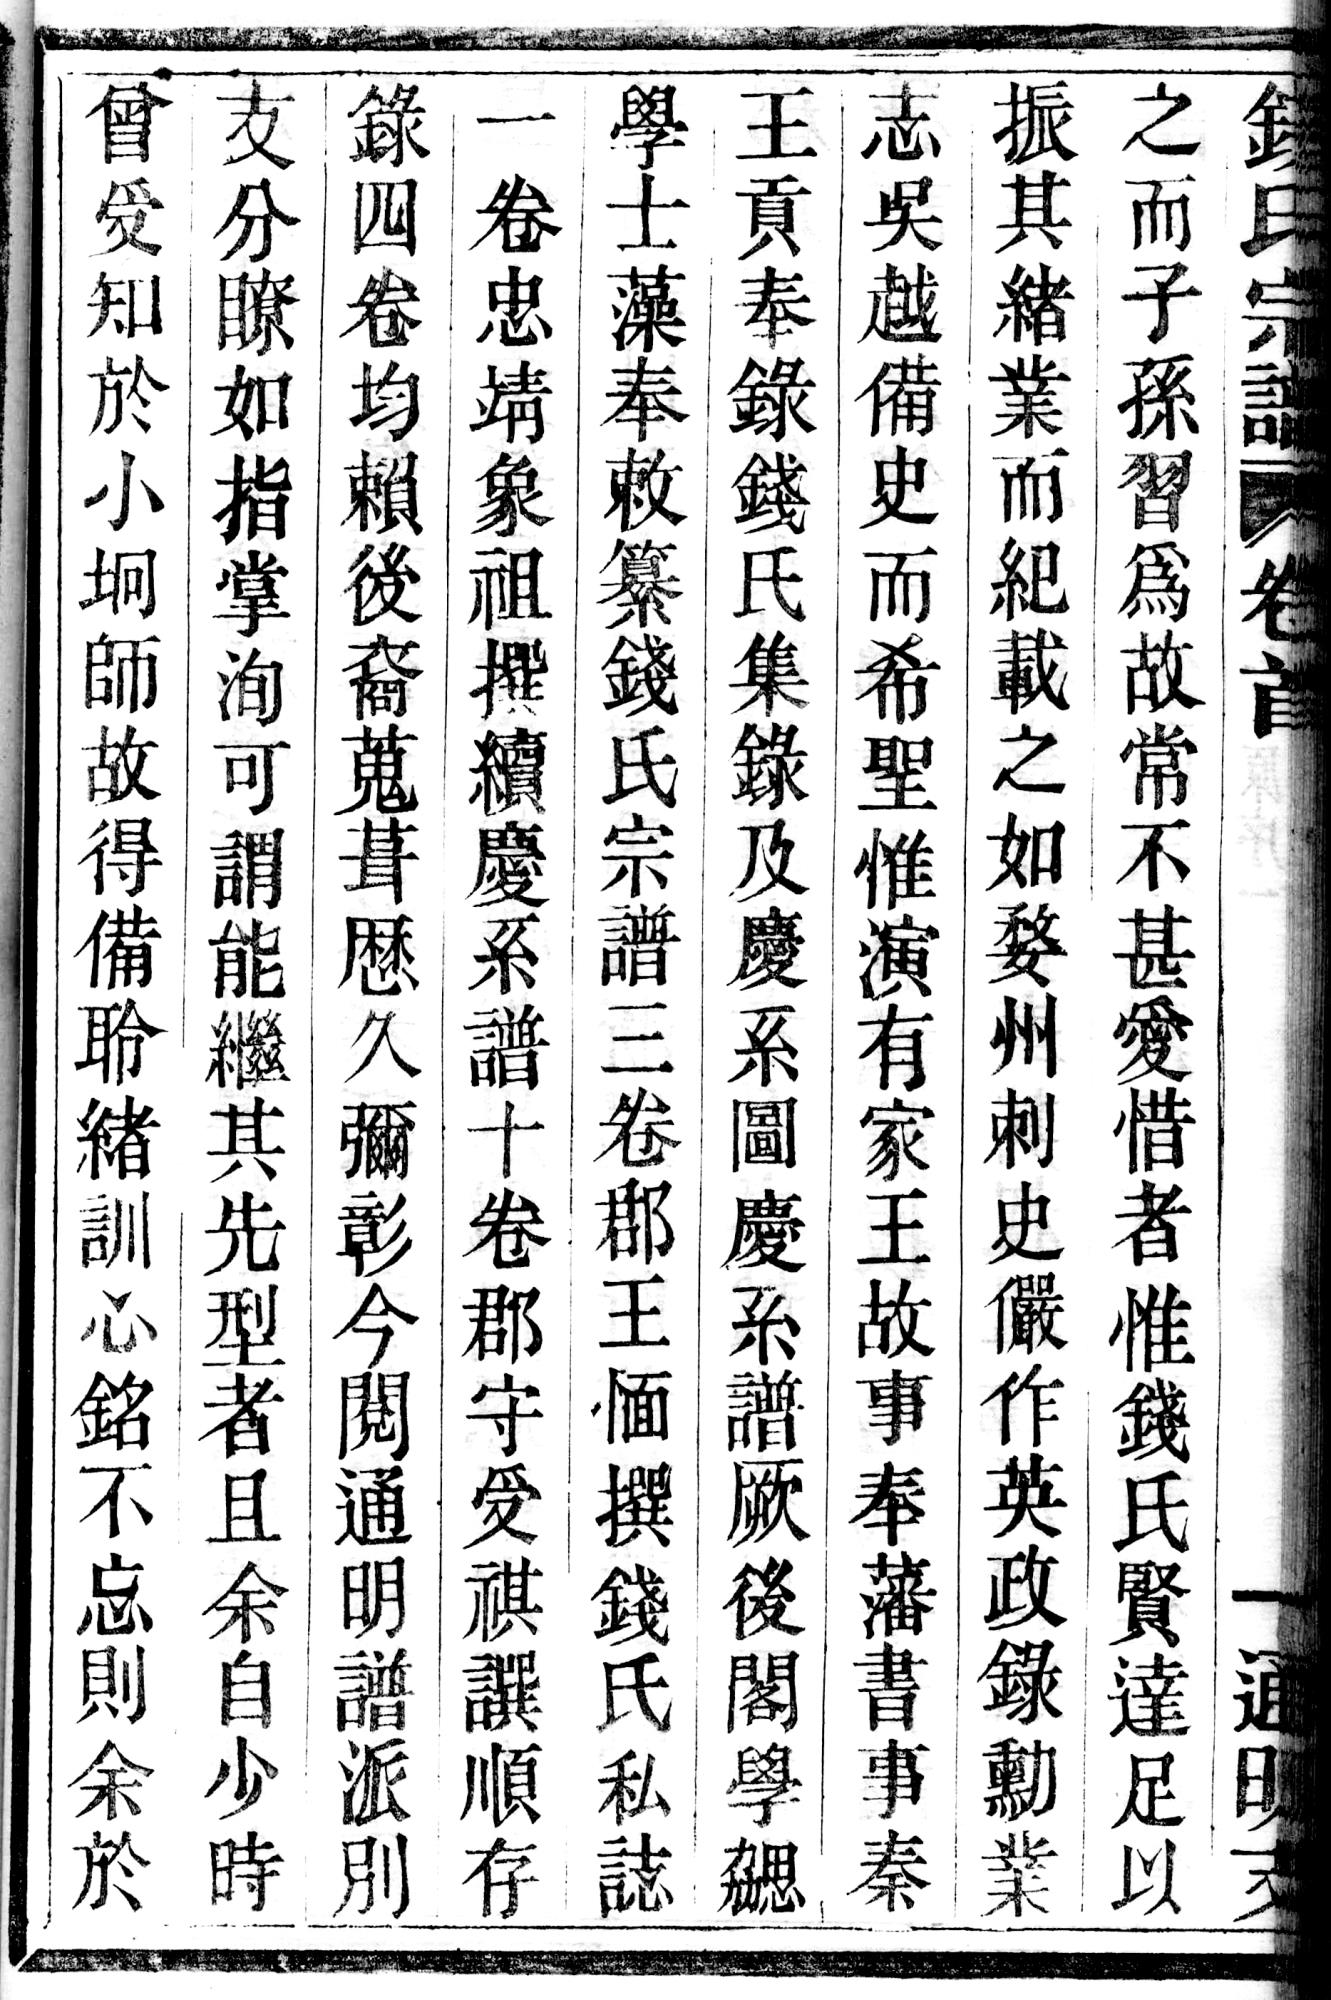 錢氏宗譜 卷首 一 通明支
之而子孫習爲故常不甚愛惜者惟錢氏賢達足以
振其緒業而紀載之如婺州刺史儼作英政錄勳業
志吳越備史而希聖惟演有家王故事奉藩書事秦
王貢奉錄錢氏集錄及慶系圖慶系譜厥後閣學勰
學士藻奉敕纂錢氏宗譜三卷郡王愐撰錢氏私誌
一卷忠靖象祖撰續慶系譜十卷郡守受祺譔順存
錄四卷均賴後裔蒐葺歷久彌彰今閱通明譜派別
支分瞭如指掌洵可謂能繼其先型者且余自少時
曾受知於小坰師故得備聆緒訓心銘不忘則余於